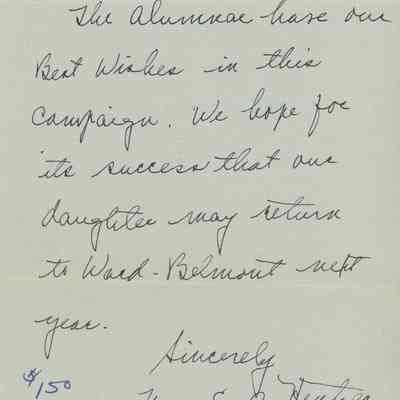 The Alumnae have our
Best Wishes in this
Campaign. We hope for
its success that our
daughter may return
to Ward-Belmont next
year.
Sincerely
$150